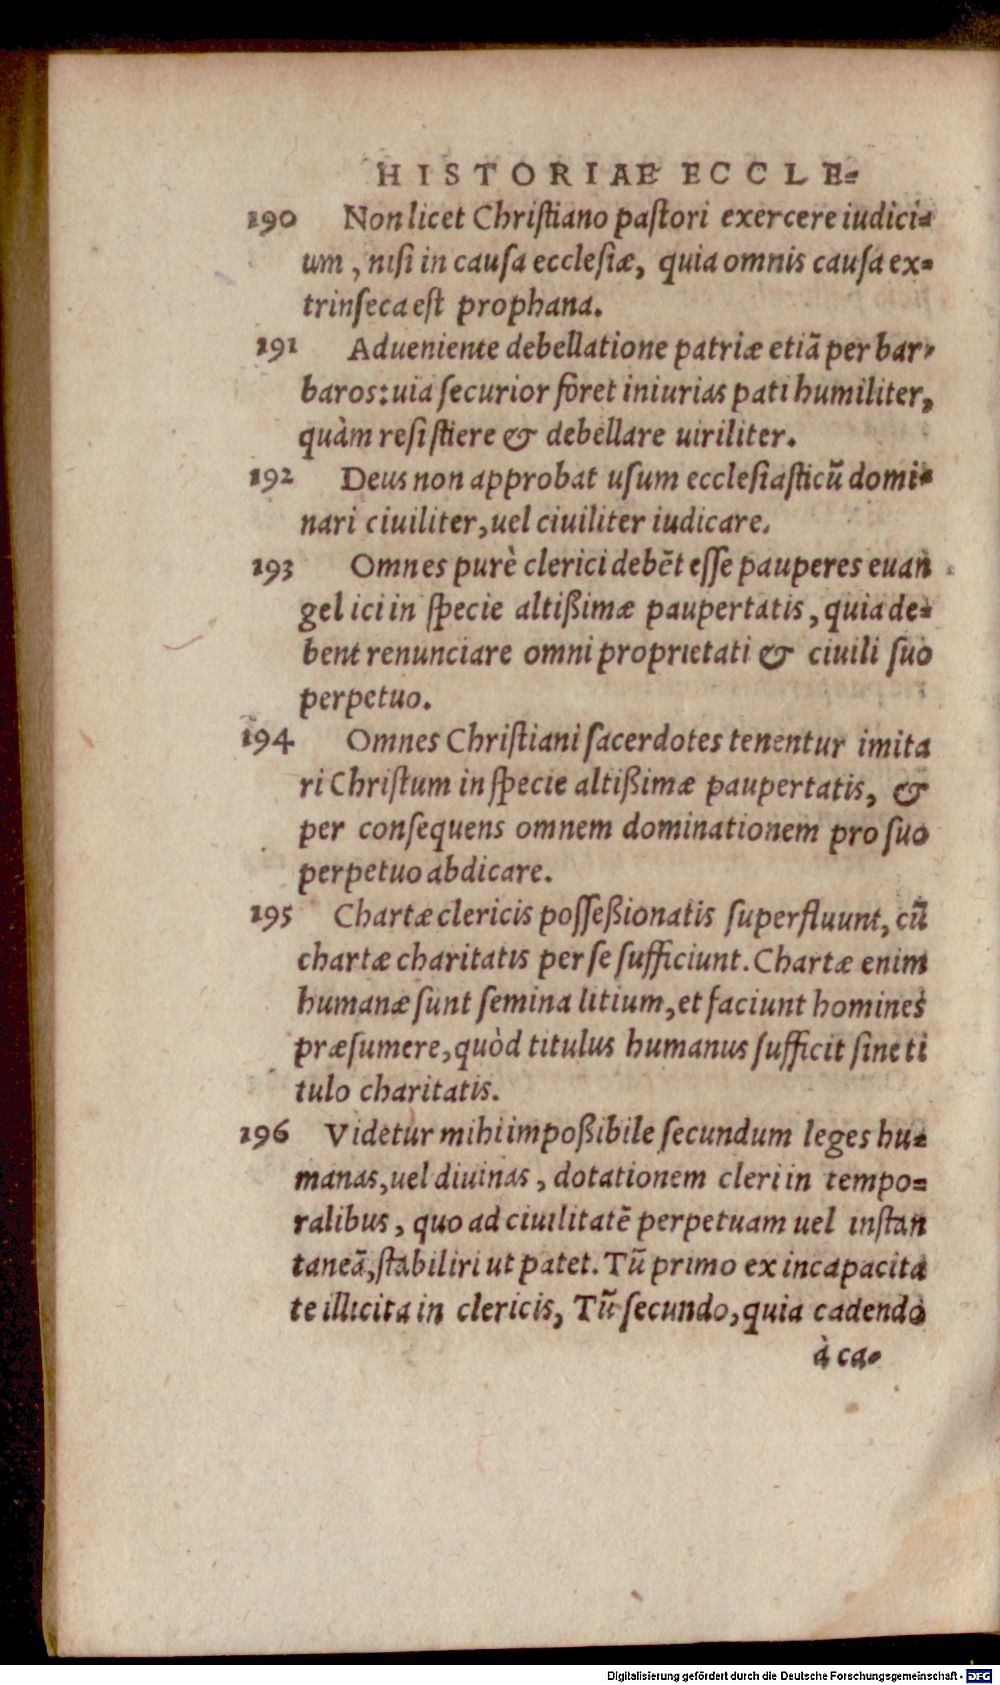 HISTORIAE ECCLE-
190 Non licet Chriſtiano paſtori exercere iudici-
um, niſi in cauſa eccleſiæ, quia omnis cauſa ex-
trinſeca eſt prophana.
191 Adueniente debellatione patriæ etiã per bar-
baros: uia ſecurior foret iniurias pati humiliter,
quàm reſiſtiere & debellare uiriliter.
192 Deus non approbat uſum eccleſiaſticũ domi-
nari ciuiliter, uel ciuiliter iudicare.
193 Omnes purè clerici debẽt eſſe pauperes euan
gelici in ſpecie altißimæ paupertatis, quia de-
bent renunciare omni proprietati & ciuili ſuo
perpetuo.
194 Omnes Chriſtiani ſacerdotes tenentur imita
ri Chriſtum in ſpecie altißimæ paupertatis, &
per conſequens omnem dominationem pro ſuo
perpetuo abdicare.
195 Chartæ clericis poſſeßionatis ſuperfluunt, cũ
chartæ charitatis per ſe ſufficiunt. Chartæ enim
humanæ ſunt ſemina litium, et faciunt homines
præſumere, quòd titulus humanus ſufficit ſine ti
tulo charitatis.
196 Videtur mihi impoßibile ſecundum leges hu-
manas, uel diuinas, dotationem cleri in tempo-
ralibus, quo ad ciuilitatẽ perpetuam uel inſtan
taneã, ſtabiliri ut patet. Tũ primo ex incapacita
te illicita in clericis, Tũ ſecundo, quia cadendo
à ca-
Digitalisierung gefördert durch die Deutsche Forschungsgemeinschaft - DFG